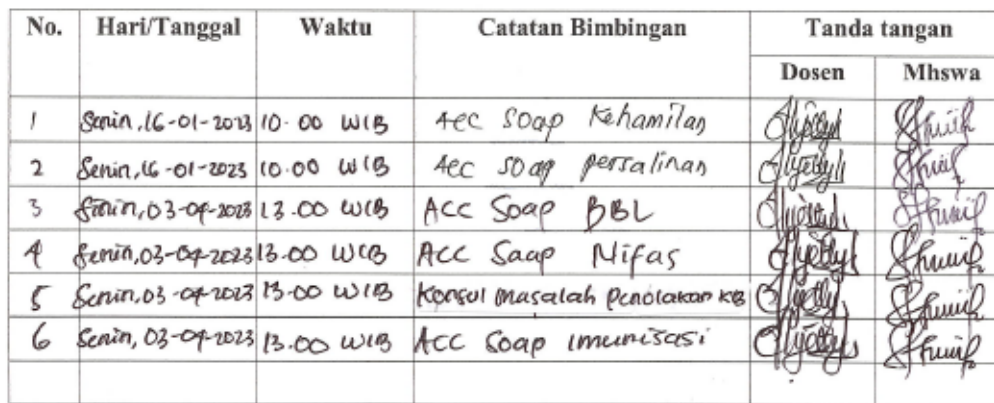 No. Hari/Tanggal Waktu Catatan Bimbingan Tanda tangan
Dosen Mhswa
1 Senin, 16-01-2023 10.00 WIB Acc Soap Kehamilan
2 Senin, 16-01-2023 10.00 WIB Acc Soap persalinan
3 Senin, 03-04-2023 13.00 WIB ACC Soap BBL
4 Senin, 03-04-2023 13.00 WIB ACC Saap Nifas
5 Senin, 03-04-2023 13.00 WIB Konsul masalah penolakan KB
6 Senin, 03-04-2023 13.00 WIB ACC Soap imunisasi